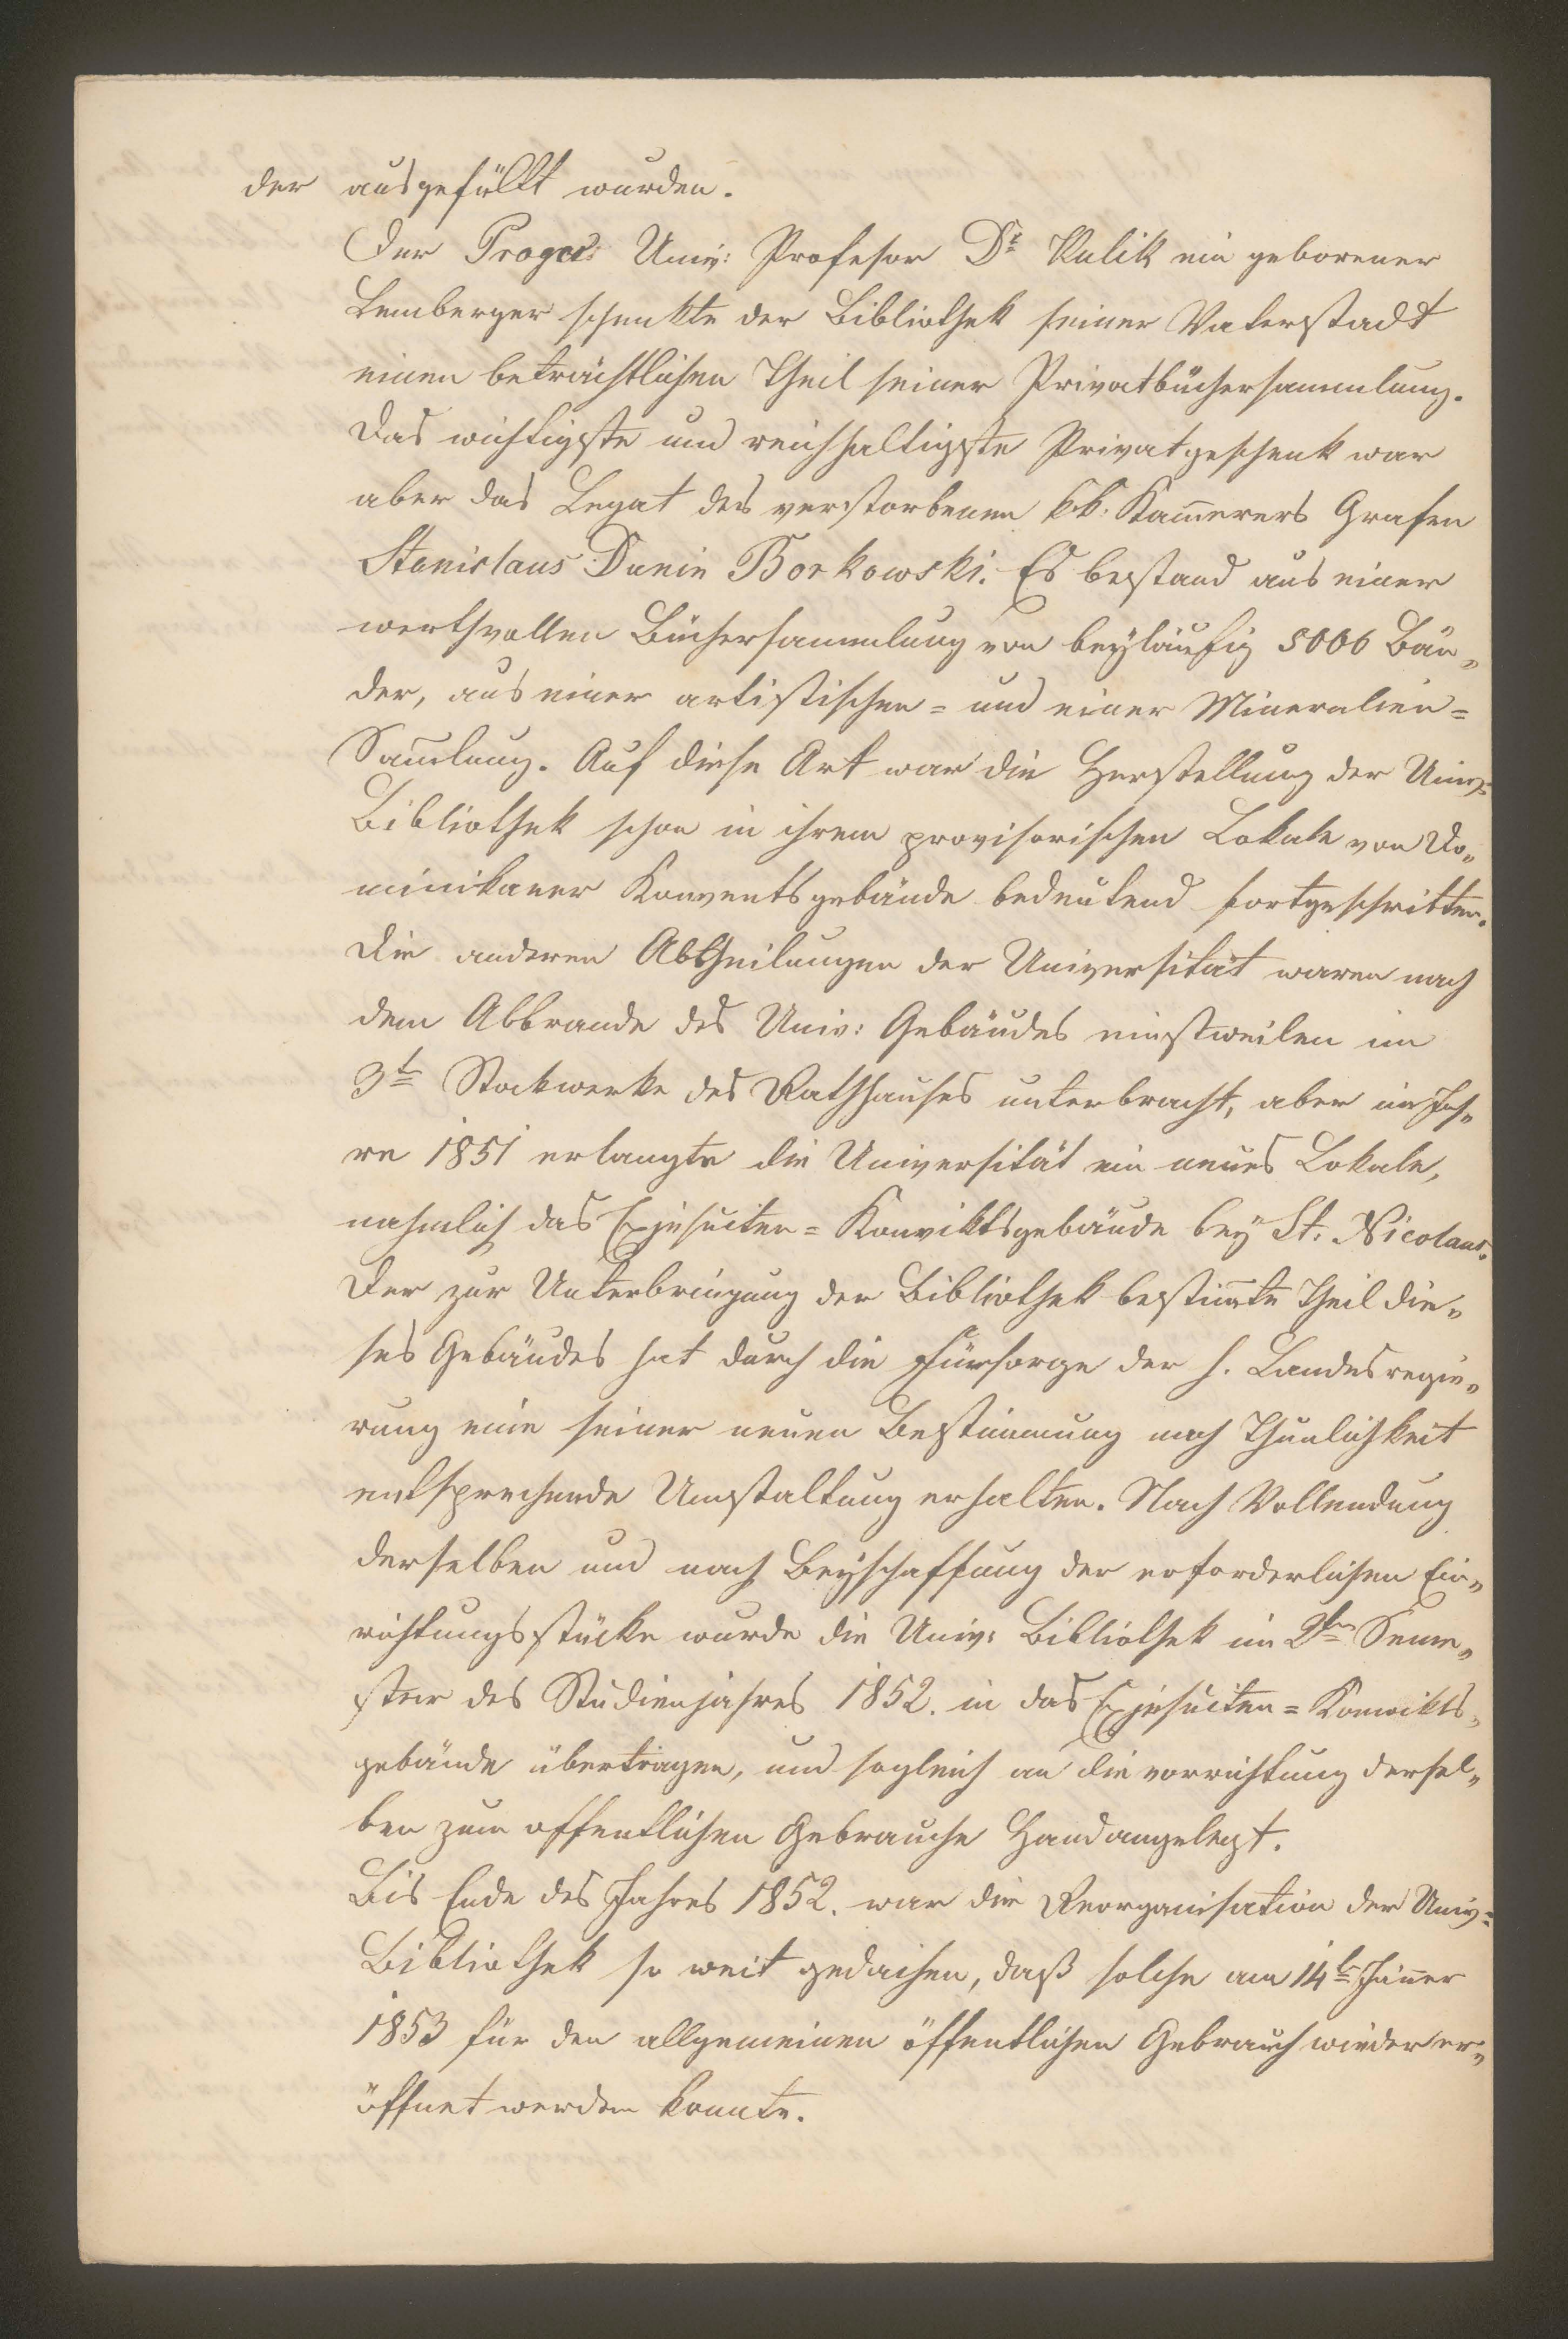 der ausgefüllt wurden.
Der Prager Univ: Profesor Dr Kulik ein geborener
Lemberger schenkte der Bibliothek seiner Vaterstadt
einen beträchtlichen Theil seiner Privatbüchersammlung.
Das wichtigste und reichhaltigste Privatgeschenk war
aber das Legat des verstorbenen kk: Kam̄erers Grafen
Stanislaus Dunin Borkowski. Es bestand aus einer
werthvollen Büchersammlung von beyläufig 5000 Bän„
der, aus einer artistischen = und einer Mineralien=
Sam̄lung. Auf diese Art war die Herstellung der Univ:
Bibliothek schon in ihrem provisorischen Lokale von Do„
minikaner Konventsgebäude bedeutend fortgeschritten.
Die anderen Abtheilungen der Universität waren nach
dem Abbrande des Univ: Gebäudes einstweilen im
3t Stockwerke des Rathhauses unterbracht, aber im Jah„
re 1851 erlangte die Universität ein neues Lokale,
nahmlich das Exjesuiten = Konviktsgebäude bey St. Nicolaus.
Der zur Unterbringung der Bibliothek bestim̄te Theil die„
ses Gebäudes hat durch die Fürsorge der h. Landesregie„
rung eine seiner neuen Bestimmung nach Thunlichkeit
entsprechende Umstaltung erhalten. Nach Vollendung
derselben und nach Beyschaffung der erforderlichen Ein„
richtungsstücke wurde die Univ: Bibliothek im 2ten Seme„
ster des Studienjahres 1852. in das Exjesuiten = Konvikts„
gebäude übertragen, und sogleich an die vorrichtung dersel„
ben zum offentlichen Gebrauche Hand angelegt.
Bis Ende des Jahres 1852. war die Reorganisation der Univ:
Bibliothek so weit gediehen, daß solche am 14t Jäner
1853 für den allgemeinen öffentlichen Gebrauch wieder er„
öffnet werden konnte.